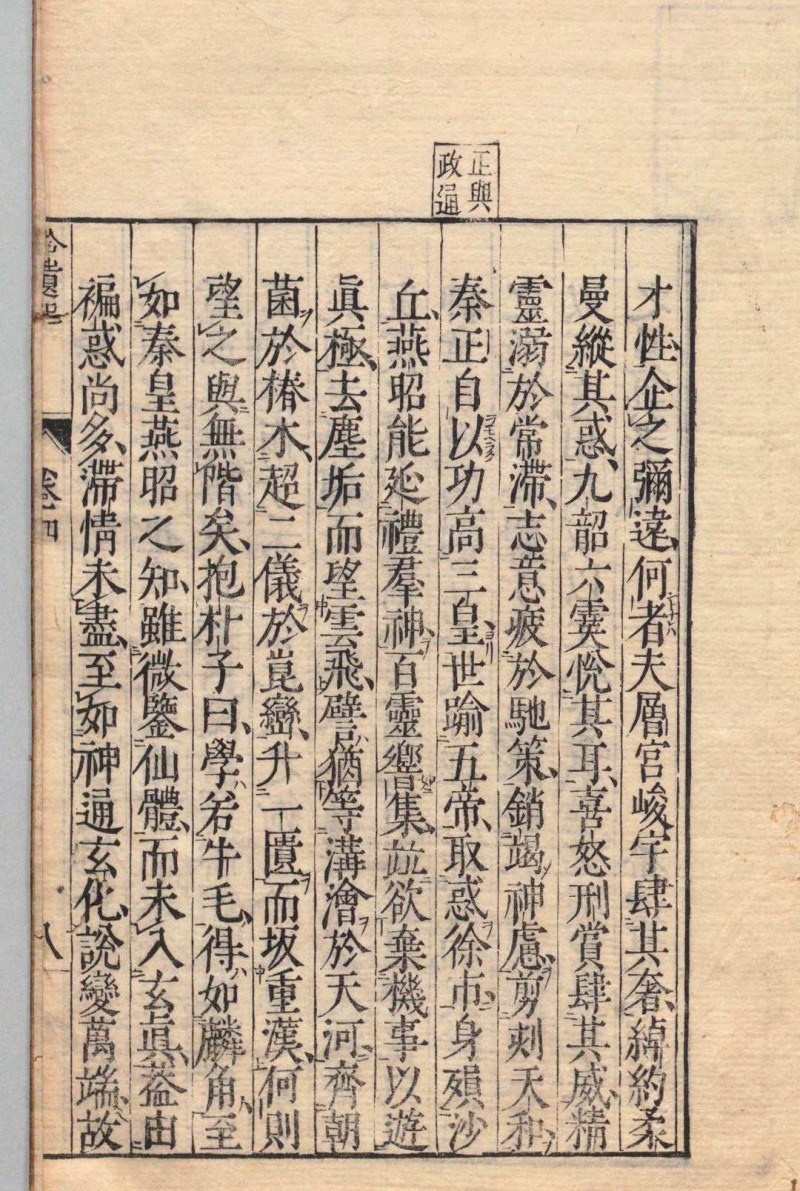 正與
政通
才性企之彌遠何者夫層宮峻宇肆其奢綽約柔
曼縱其惑九韶六霙悅其耳喜怒刑賞肆其威精
靈溺於常滯志意疲於馳策銷竭神慮剪刻天和
秦正自以功高三皇世踰五帝取惑徐市身殞沙
丘燕昭能延禮羣神百靈響集竝欲棄機事以遊
眞極去塵垢而望雲飛譬猶等溝澮於天河齊朝
菌於椿木超二儀於崑巒升一匱而坂重漢何則
望之與無階矣抱朴子曰學若牛毛得如麟角至
如秦皇燕昭之知雖微鑒仙體而未入玄眞葢由
褊惑尚多滯情未盡至如神通玄化說變萬端故
拾遺記
卷四
八